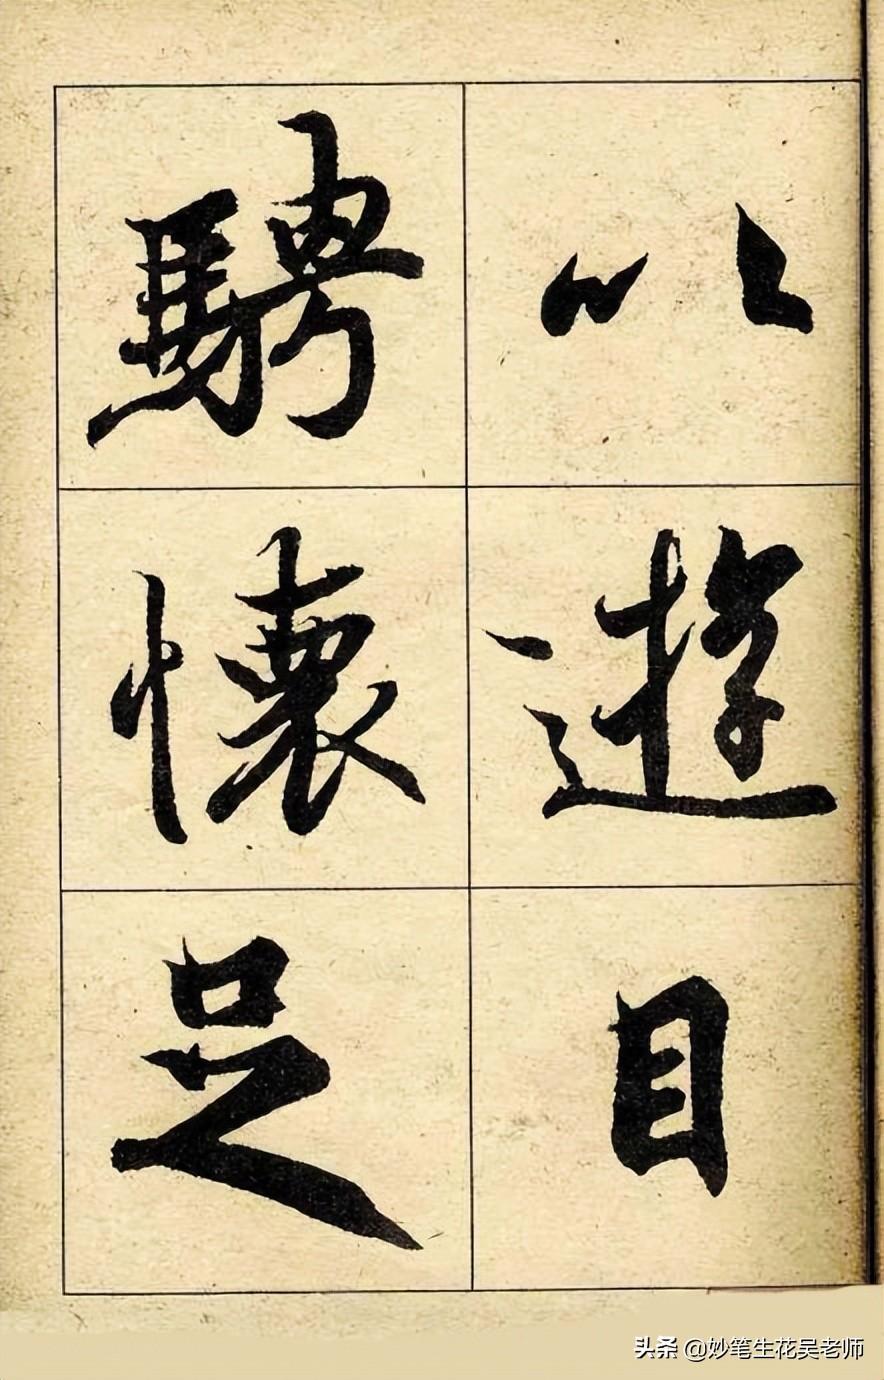 以遊目
騁懷足
头条 @妙笔生花吴老师